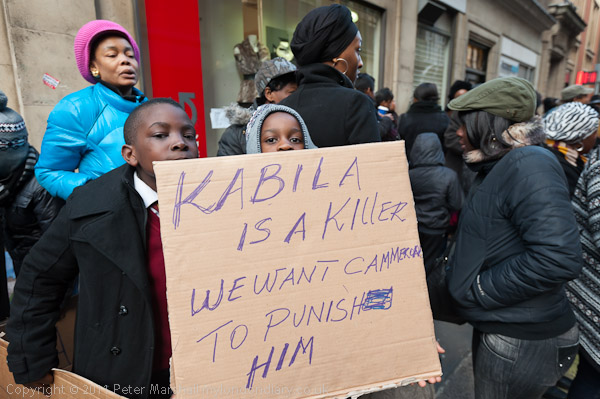 KABILA
IS A KILLER
WE WANT CAMMERON
TO PUNISH
HIM
Copyright © 2011 Peter Marshall